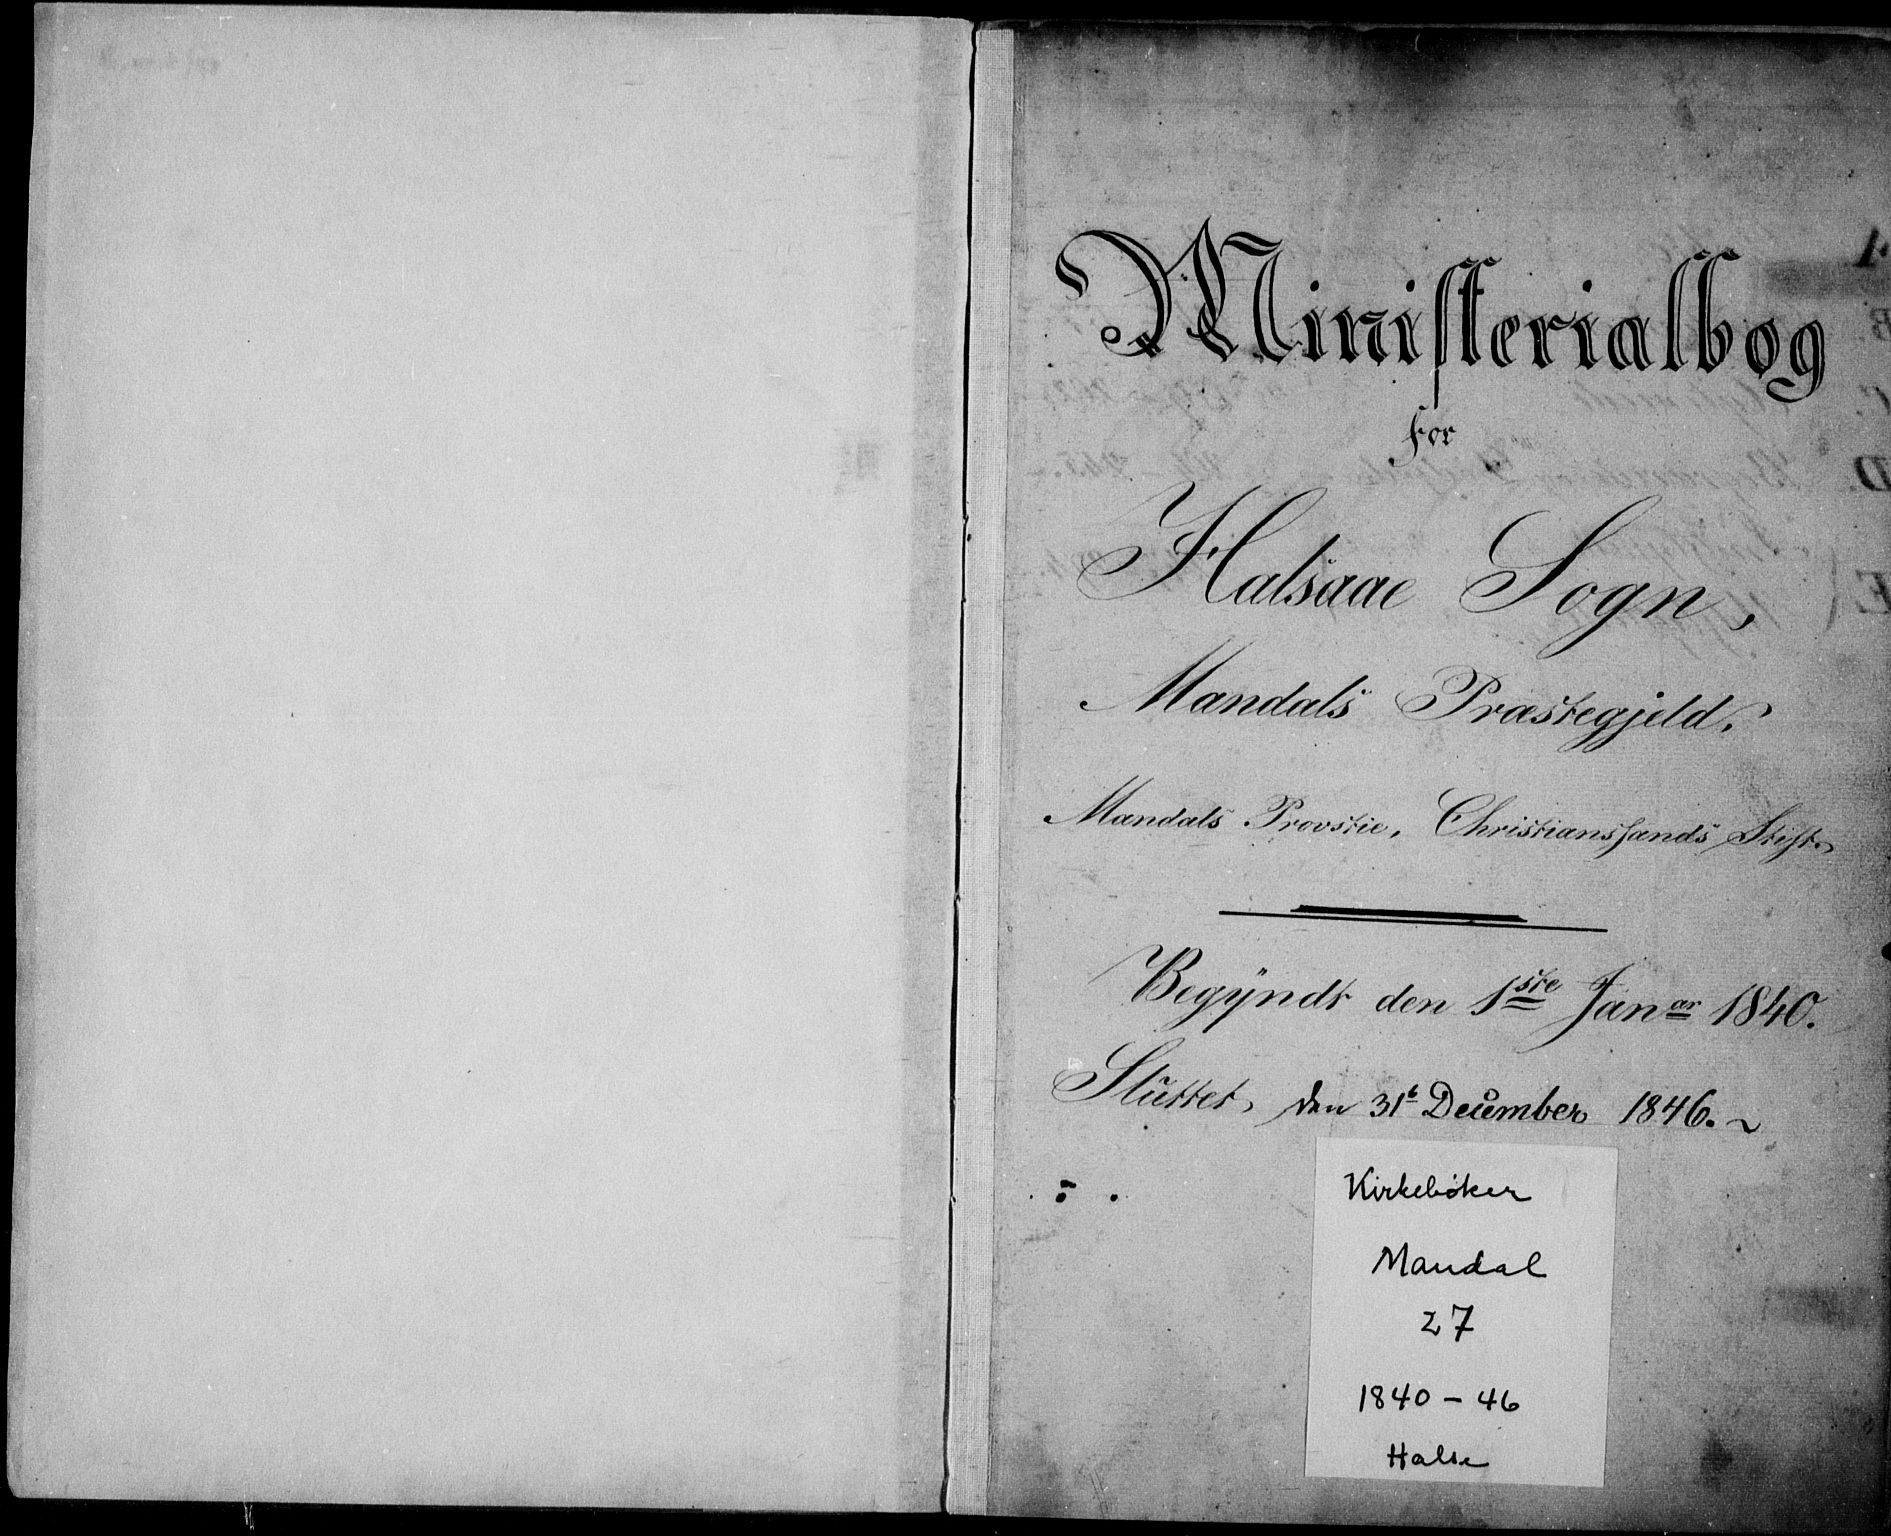 Ministerialbog
for
Halsaae Sogn,
Mandals Præstegjeld.
Mandals Provstie, Christianssands Stift.
Begyndt den 1ste Janar 1840.
Sluttet, den 31t December 1846.
Kirkebøker
Mandal
27
1840 - 46
Halse
A
B.
C.
D.
E